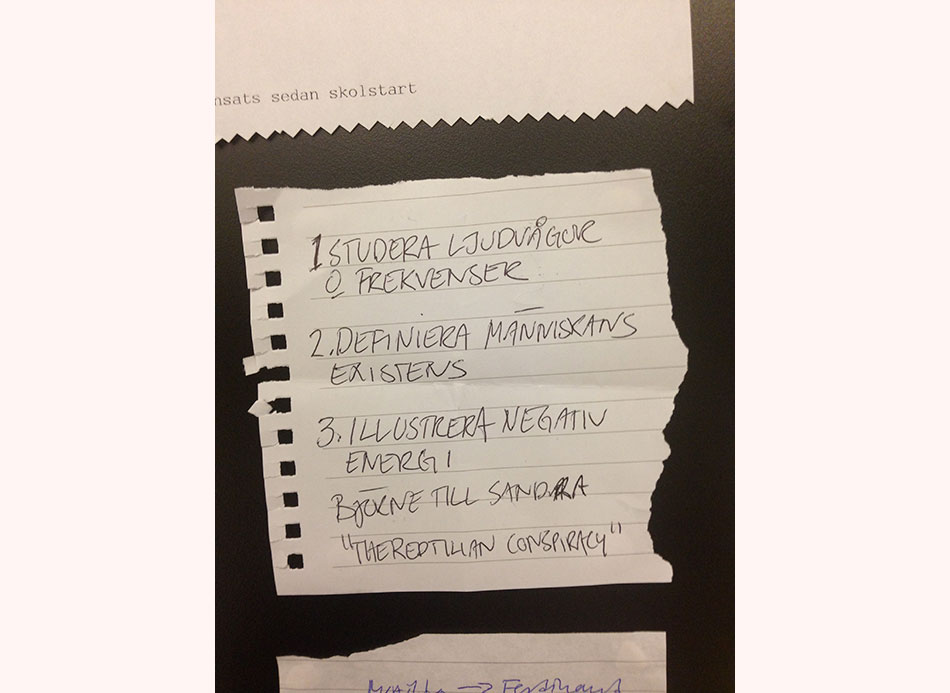 nsats sedan skolstart
1 STUDERA LJUDVÅGOR
O FREKVENSER
2. DEFINIERA MÄNNISKANS
EXISTENS
3. ILLUSTRERA NEGATIV
ENERGI
BJÖRNE TILL SANDRA
"THE REPTILIAN CONSPIRACY"